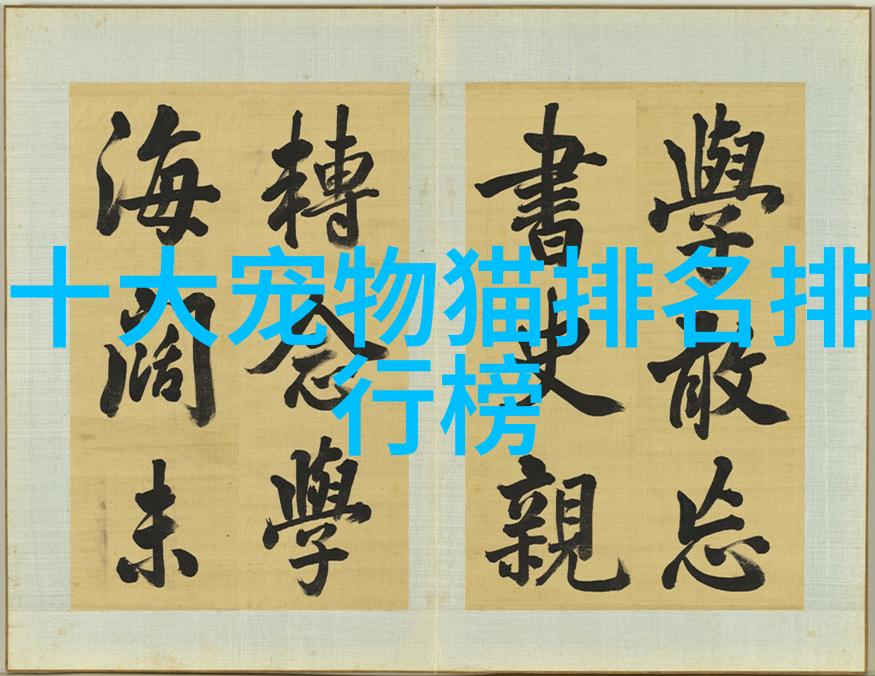 十大宠物猫排名排
行榜
學敢忘
書史親
轉念學
海闊未